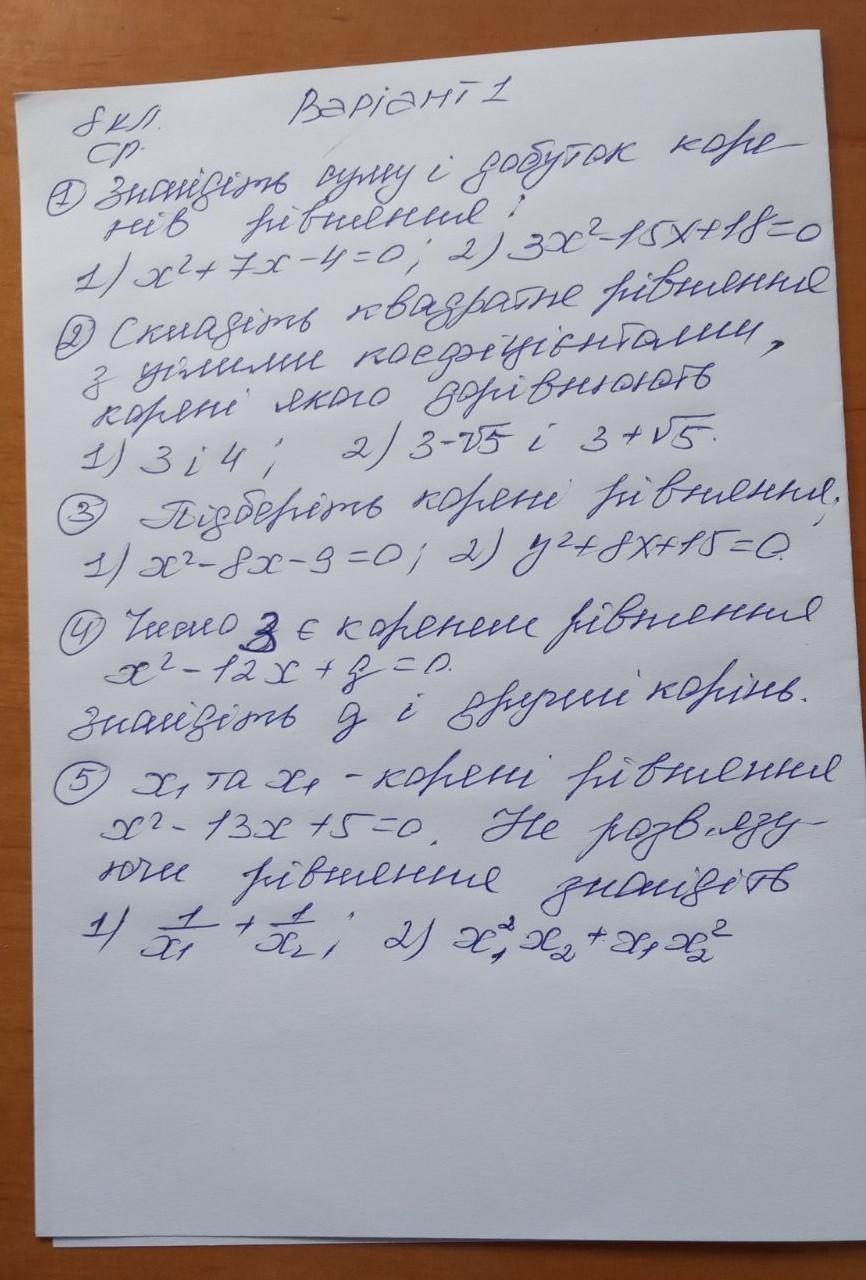 8 кл. Варіант 1
ср.
① Знайдіть суму і добуток коре-
нів рівняння:
1) x²+7x-4=0; 2) 3x²-15x+18=0
② Складіть квадратне рівняння
з цілими коефіцієнтами,
корені якого дорівнюють
1) 3 і 4; 2) 3-√5 і 3+√5.
③ Підберіть корені рівняння;
1) x²-8x-9=0; 2) y²+8x+15=0.
④ Число 3 є коренем рівняння
x²-12x+q=0.
Знайдіть q і другий корінь.
⑤ x₁ та x₁ - корені рівняння
x²-13x+5=0. Не розв'язу-
ючи рівняння знайдіть
1) 1/x₁ + 1/x₂; 2) x₁²x₂+x₁x₂²